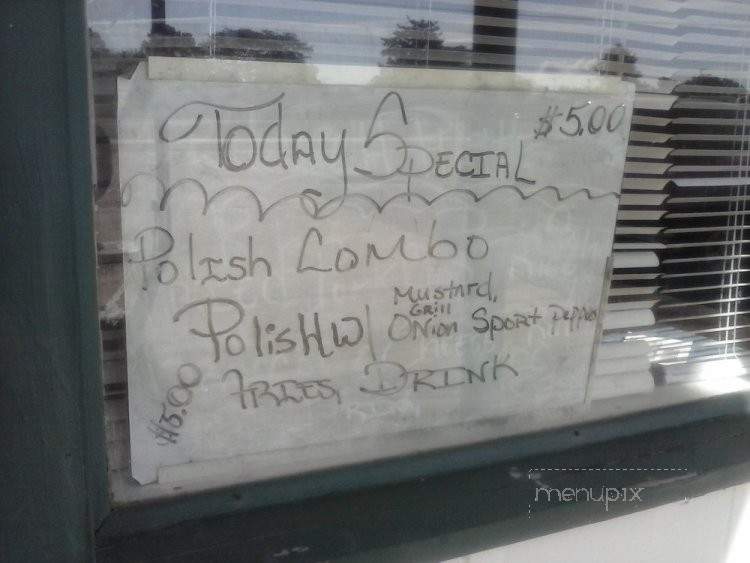 Today Special $5.00
Polish Combo
Polish W/ Mustard,
Grill
Onion Sport Peppers
Fries, Drink
$5.00
menupix